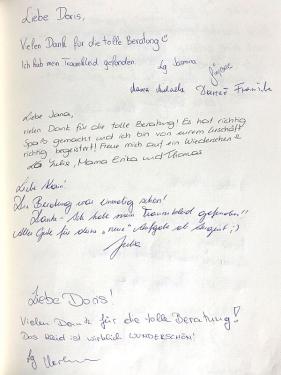 Liebe Doris,
Vielen Dank für die tolle Beratung ☺
Ich hab mein Traumkleid gefunden.
lg Jasmina
Mama Michaela
Liebe Jana,
vielen Dank für die tolle Beratung! Es hat richtig
Spaß gemacht und ich bin von eurem Geschäft
richtig begeistert! Freue mich auf ein Wiedersehen ☺
LG Julia, Mama Erika und Thomas
Liebe
Die Beratung war einmalig schön!
Danke - Ich habe mein Traumkleid gefunden!!
Alles Gute für deine "neue" Aufgabe ab August ;)
Julia
Liebe Doris!
Vielen Dank für die tolle Beratung!
Das Kleid ist wirklich WUNDERSCHÖN!
Lg